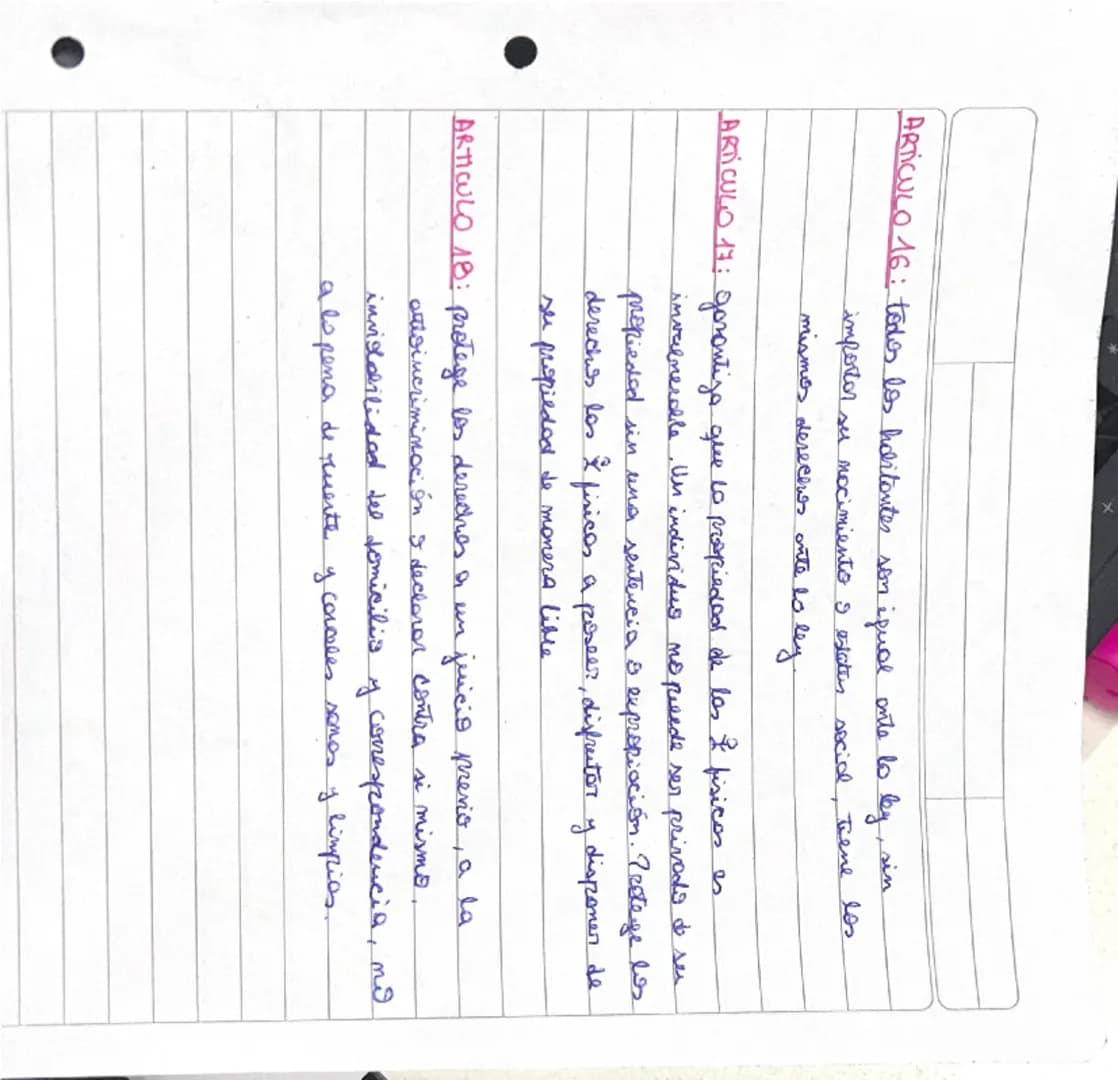 ARTÍCULO 16: todos los habitantes son igual ante la ley, sin
importar su nacimiento o estatus social, tiene los
mismos derechos ante la ley.
ARTÍCULO 17: garantiza que la propiedad de las físicas es
invulnerable. Un individuo no puede ser privado d su
propiedad sin una sentencia o expropiación. Protege los
derechos las físicas a poseer, disfrutar y disponer de
su propiedad de manera libre
ARTICULO 18: protege los derechos a un juicio previo, a la
autoincriminación o declarar contra si mismo,
inviolabilidad del domicilio y correspondencia, no
a la pena de muerte y carceles sanas y limpias.